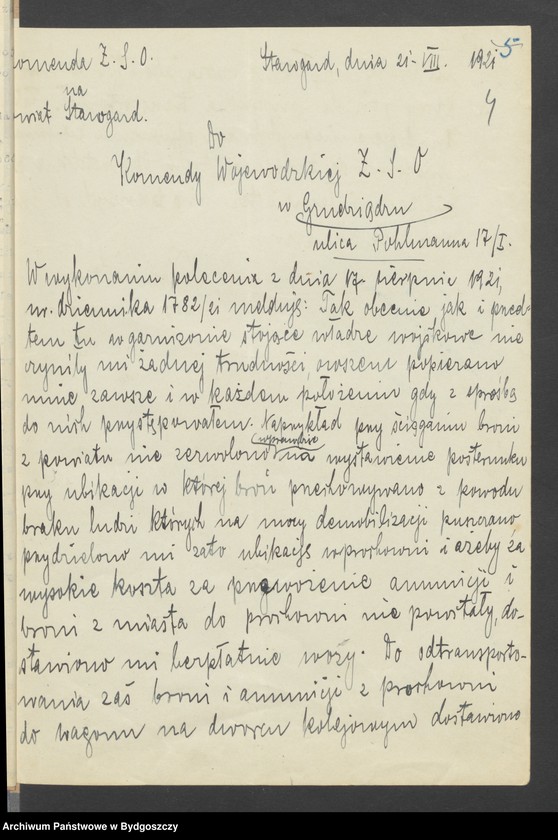 Komenda Z. S. O.
na
powiat Starogard.
Starogard, dnia 21. VIII. 1921
5
4
Do
Komendy Wojewodzkiej Z. S. O
w Grudziądzu
ulica Pohlmanna 17/I.
W wykonaniu polecenia z dnia 17. sierpnia 1921,
nr. dziennika 1782/21 melduję: Tak obecnie jak i przed-
tem tu w garnizonie stojące władze wojskowe nie
czyniły mi żadnej trudności, owszem popierano
mnie zawsze i w każdem położeniu gdy z prośbą
do nich przystępowałem. Naprzykład przy ściąganiu broni
z powiatu nie zezwolono wprawdzie na wystawienie posterunku
przy ubikacji w której broń przechowywano z powodu
braku ludzi których na mocy demobilizacji puszczano,
przydzielono mi zato ubikację w prochowni i ażeby za
wysokie koszta za przewożenie amunicji i
broni z miasta do prochowni nie powstały, do-
stawiono mi bezpłatnie wozy. Do odtransporto-
wania zaś broni i amunicji z prochowni
do wagonu na dworcu kolejowym dostawiono
Archiwum Państwowe w Bydgoszczy